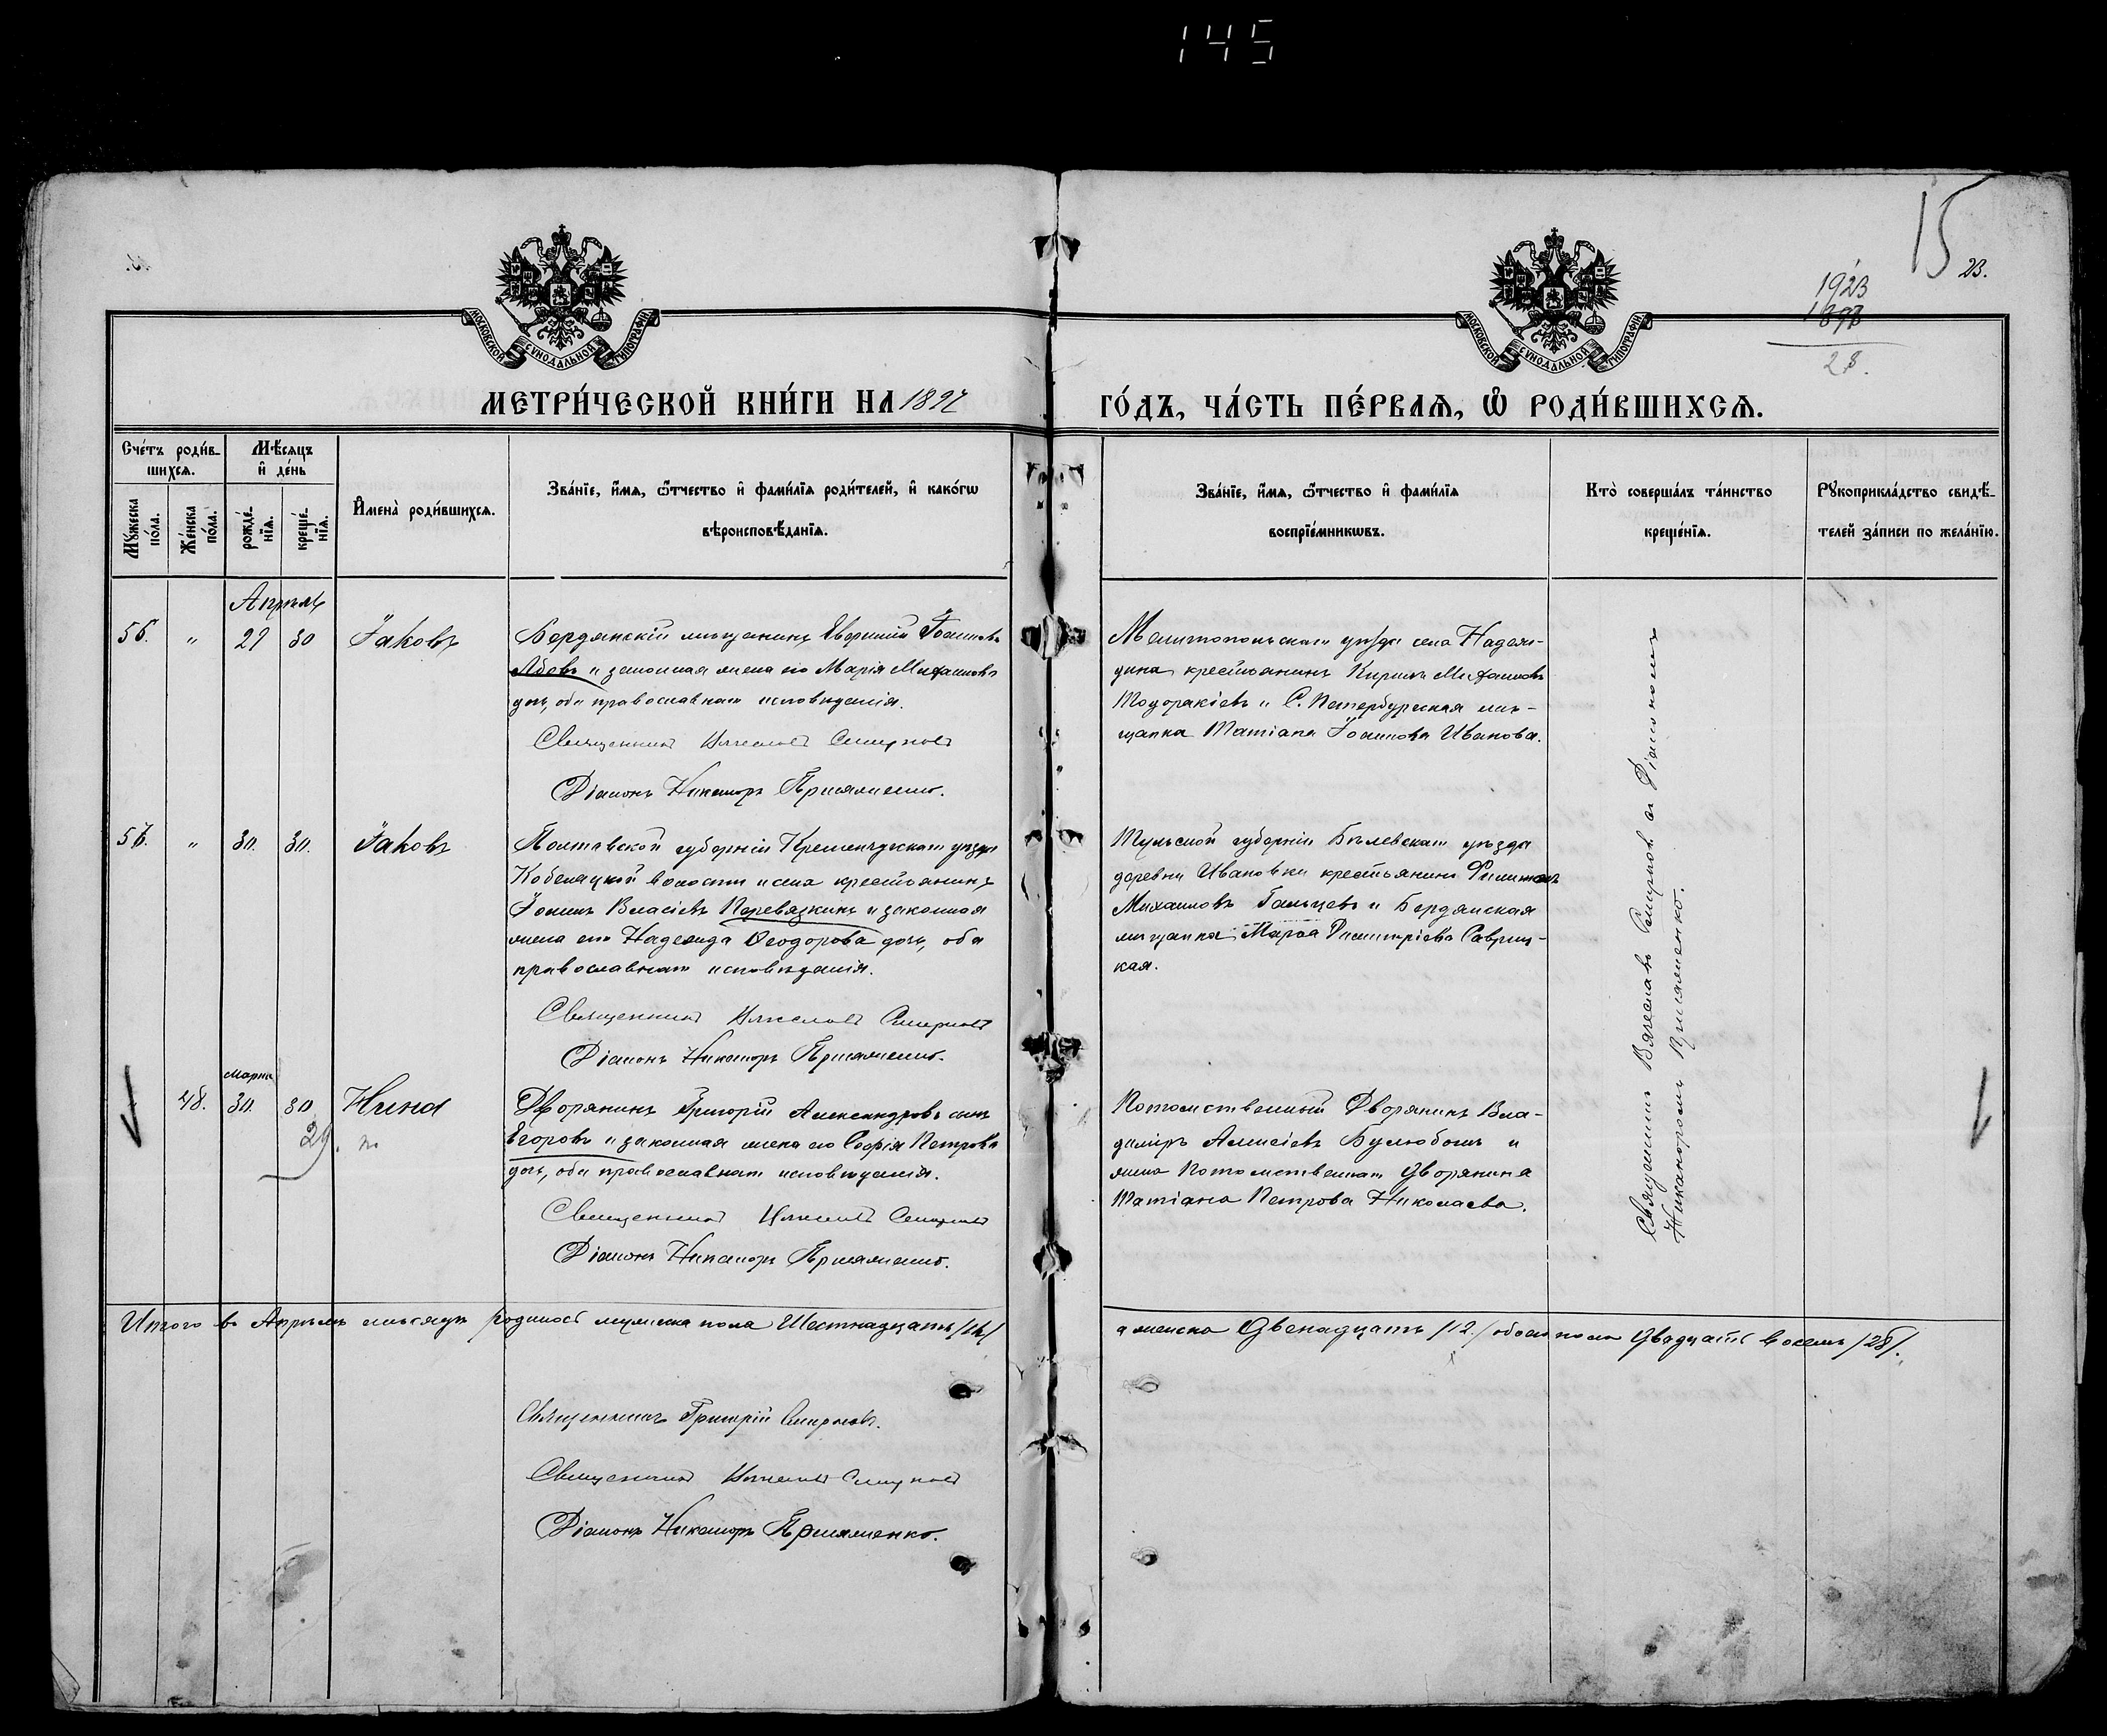 145
15
23.
1923
189
28.
МОСКОВСКОЙ СѴНОДАЛЬНОЙ ТИПОГРАФІИ
МОСКОВСКОЙ СѴНОДАЛЬНОЙ ТИПОГРАФІИ
МЕТРИ́ЧЕСКОЙ КНИ́ГИ НА 1897
ГО́ДЪ, ЧА́СТЬ ПЕ́РВАѦ, Ѽ РОДИ́ВШИХСѦ.
Сче́тъ роди́в-
шихсѧ.
Мꙋжеска по́ла.
Же́нска по́ла.
Мѣ́сѧцъ
и҆ де́нь
рожде́-
нїѧ.
креще́-
нїѧ.
И҆мена̀ роди́вшихсѧ.
Зва́нїе, и҆́мѧ, ѻ҆́тчество и҆ фами́лїѧ роди́телей, и҆ како́гѡ
вѣроисповѣ́данїѧ.
Зва́нїе, и҆́мѧ, ѻ҆́тчество и҆ фами́лїѧ
воспрїе́мникѡвъ.
Кто̀ соверша́лъ та́инство
креще́нїѧ.
Рꙋкоприкла́дство свидѣ́-
телей за́писи по жела́нїю.
Апрѣль
56. " 29 30 Іаковъ
Бердянскій мѣщанинъ Іоанновъ
и законная жена его Марія Михаилова
дочь, оба православнаго исповѣданія.
Священникъ Вячеславъ Смирновъ
Діаконъ Никаноръ Присяженко.
Мелитопольскаго уѣзда села Надеж-
дина крестьянинъ Кириллъ Михаиловъ
Тодоракіевъ и С. Петербургская мѣ-
щанка Татіана Іоаннова Иванова.
57. " 30. 30. Іаковъ
Полтавской губерніи Кременчугскаго уѣзда
Кобеляцкой волости и села крестьянинъ
Іоаннъ Власіевъ Перевязкинъ и законная
жена его Надежда Ѳеодорова дочь, оба
православнаго исповѣданія.
Священникъ Вячеславъ Смирновъ
Діаконъ Никаноръ Присяженко.
Тульской губерніи Бѣлевскаго уѣзда
деревни Ивановки крестьянинъ Филимонъ
Михаиловъ Гальцевъ и Бердянская
мѣщанка Марѳа Димитріева Савриц-
кая.
Марта
48. 30. 30 Нина
29.
Дворянинъ Григорій Александровъ сынъ
Егоровъ и законная жена его Софія Петрова
дочь, оба православнаго исповѣданія.
Священникъ Вячеславъ Смирновъ
Діаконъ Никаноръ Присяженко.
Потомственный Дворянинъ Вла-
диміръ Алексіевъ и
жена Потомственнаго Дворянина
Татіана Петрова Николаева.
Священникъ Вячеславъ Смирновъ съ Діакономъ
Никаноромъ Присяженко.
Итого въ Апрѣлѣ мѣсяцѣ родилось мужеска пола Шестнадцать /16/
а женска Двенадцать /12/ обоего пола Двадцать восемь /28/.
Священникъ Григорій Смирновъ.
Священникъ Вячеславъ Смирновъ
Діаконъ Никаноръ Присяженко.